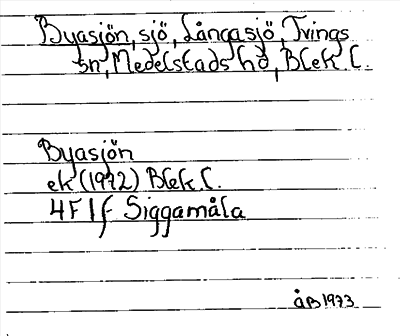 Byasjön, sjö, Långasjö, Tvings
sn, Medelstads hd, Blek l.
Byasjön
ek (1972) Blek l.
4F 1f Siggamåla
ÅB 1973